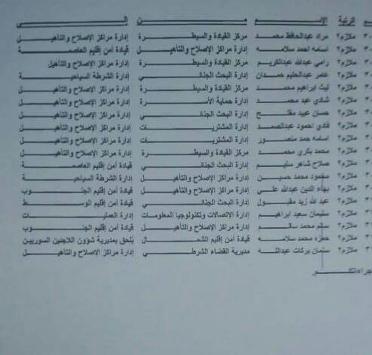 الرتبة الاسم من الى
ملازم٢ مراد عبدالحافظ محمد مركز القيادة والسيطرة إدارة مراكز الإصلاح والتأهيل
ملازم٢ أسامه احمد سلامه مركز الإصلاح والتأهيل قيادة أمن إقليم العاصمة
ملازم٢ رامي عبدالله عبدالكريم مركز القيادة والسيطرة إدارة مراكز الإصلاح والتأهيل
ملازم٢ عامر عبدالحليم حمدان إدارة البحث الجنائي إدارة الشرطة السياحية
ملازم٢ ليث ابراهيم محمد مركز القيادة والسيطرة إدارة مراكز الإصلاح والتأهيل
ملازم٢ شادي عيد محمد إدارة حماية الأسرة إدارة مراكز الإصلاح والتأهيل
ملازم٢ حسان عبيد مفلح إدارة البحث الجنائي إدارة مراكز الإصلاح والتأهيل
ملازم٢ فادي احمود عبدالصمد إدارة المشتريات إدارة مراكز الإصلاح والتأهيل
ملازم٢ اسامه حمد منصور إدارة المشتريات إدارة مراكز الإصلاح والتأهيل
ملازم٢ محمد بكري محمد مركز القيادة والسيطرة إدارة مراكز الإصلاح والتأهيل
ملازم٢ صلاح شاهر سليم إدارة البحث الجنائي قيادة أمن إقليم العاصمة
ملازم٢ محمود محمد حسين مركز الإصلاح والتأهيل إدارة الشرطة السياحية
ملازم٢ بهاء الدين عبدالله علي مركز الإصلاح والتأهيل قيادة أمن إقليم الجنوب
ملازم٢ عبد الله زيد مقبول إدارة البحث الجنائي قيادة أمن إقليم الوسط
ملازم٢ سليمان سعيد ابراهيم إدارة الاتصالات وتكنولوجيا المعلومات إدارة العمليات
ملازم٢ سليم محمد سالم إدارة مراكز الإصلاح والتأهيل قيادة أمن إقليم الجنوب
ملازم٢ حمزه محمد سلامه قيادة أمن إقليم الشمال يلحق بمديرية شؤون اللاجئين السوريين
ملازم٢ سلمان بركات عبدالله مديرية القضاء الشرطي إدارة مراكز الإصلاح والتأهيل